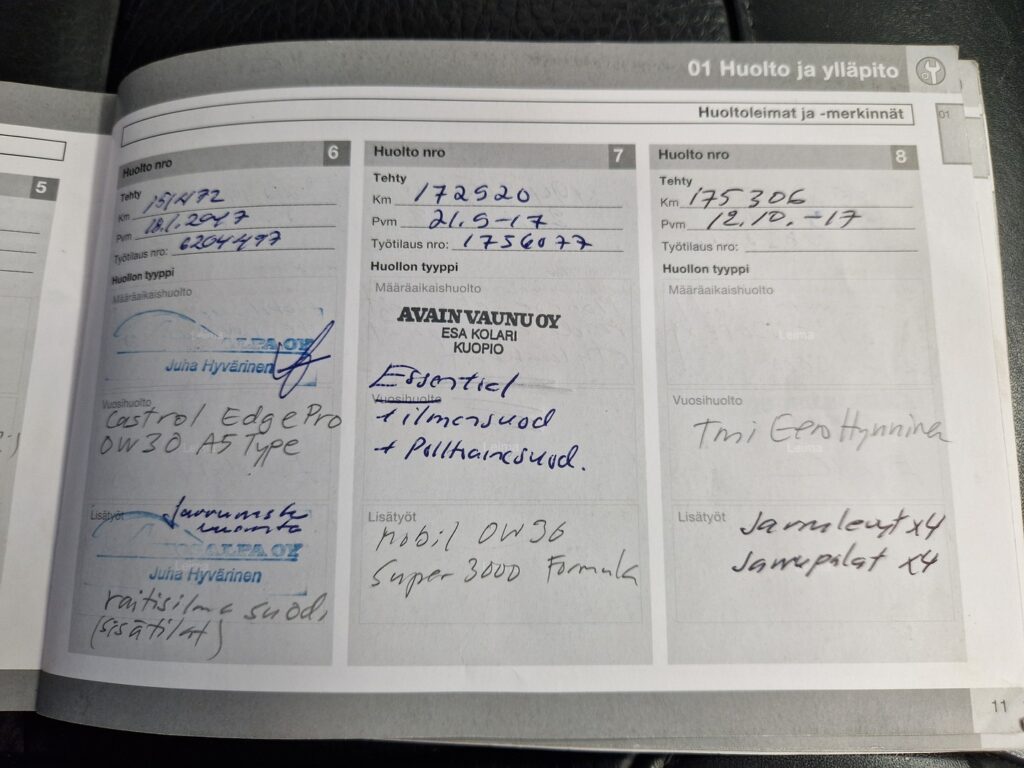 01 Huolto ja ylläpito
Huoltoleimat ja -merkinnät
01
5
Huolto nro 6
Tehty
Km 151472
Pvm 18.1.2017
Työtilaus nro: 6204497
Huollon tyyppi
Määräaikaishuolto
ALPA OY
Juha Hyvärinen
Vuosihuolto
Castrol Edge Pro
0W30 A5 Type
Lisätyöt
ALPA OY
Juha Hyvärinen
raitisilma suod.
(sisätilat)
Huolto nro 7
Tehty
Km 172920
Pvm 21.9-17
Työtilaus nro: 1756077
Huollon tyyppi
Määräaikaishuolto
AVAIN VAUNU OY
ESA KOLARI
KUOPIO
Essential
Vuosihuolto
+ ilmansuod
+ Polttoainesuod.
Leima
Lisätyöt
Mobil 0W30
Super 3000 Formula
Huolto nro 8
Tehty
Km 175306
Pvm 12.10.-17
Työtilaus nro:
Huollon tyyppi
Määräaikaishuolto
Leima
Vuosihuolto
Tmi Eero Hynninen
Leima
Lisätyöt
Jarrulevyt x4
Jarrupalat x4
11